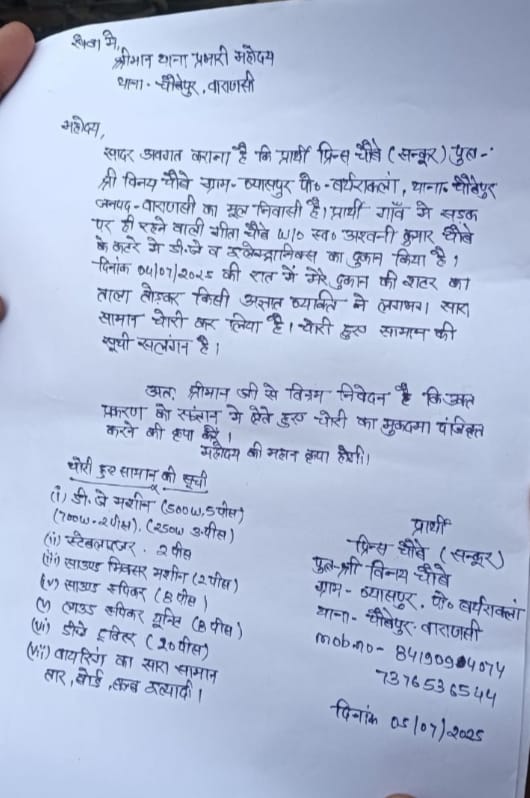 सेवा में,
श्रीमान थाना प्रभारी महोदय
थाना - चौबेपुर, वाराणसी
महोदय,
सादर अवगत कराना है कि प्रार्थी प्रिन्स चौबे (सन्कूर) पुत्र-
श्री विनय चौबे ग्राम- व्यासपुर पो०- बर्थराकलां, थाना- चौबेपुर
जनपद- वाराणसी का मूल निवासी है। प्रार्थी गाँव में सड़क
पर ही रहने वाली गीता चौबे W/O स्व० अश्वनी कुमार चौबे
के कटरे में डी.जे व इलेक्ट्रानिक्स का दुकान किया है।
दिनांक 04/07/2025 की रात में मेरे दुकान की शटर का
ताला तोड़कर किसी अज्ञात व्यक्ति ने लगभग सारा
सामान चोरी कर लिया है। चोरी हुए सामान की
सूची सलंगन है।
अतः श्रीमान जी से विनम्र निवेदन है कि उक्त
प्रकरण को संज्ञान में लेते हुए चोरी का मुकदमा पंजिकृत
करने की कृपा करें।
महोदय की महान कृपा होगी।
चोरी हुए सामान की सूची
(i) डी.जे मशीन (500W,5 पीस)
(700W-2पीस), (250W 3-पीस)
(ii) स्टेबलाइजर - 2 पीस
(iii) साउण्ड मिक्सर मशीन (2 पीस)
(iv) साउण्ड स्पिकर (8 पीस)
(v) लाउड स्पिकर यूनिट (8 पीस)
(vi) डीजे ट्विटर (20 पीस)
(vii) वायरिंग का सारा सामान
तार, बोर्ड, बल्ब इत्यादी।
प्रार्थी
प्रिन्स चौबे (सन्कूर)
पुत्र-श्री विनय चौबे
ग्राम- व्यासपुर, पो० बर्थराकलां
थाना- चौबेपुर- वाराणसी
mobno- 8419094074
7376536544
दिनांक 05/07/2025